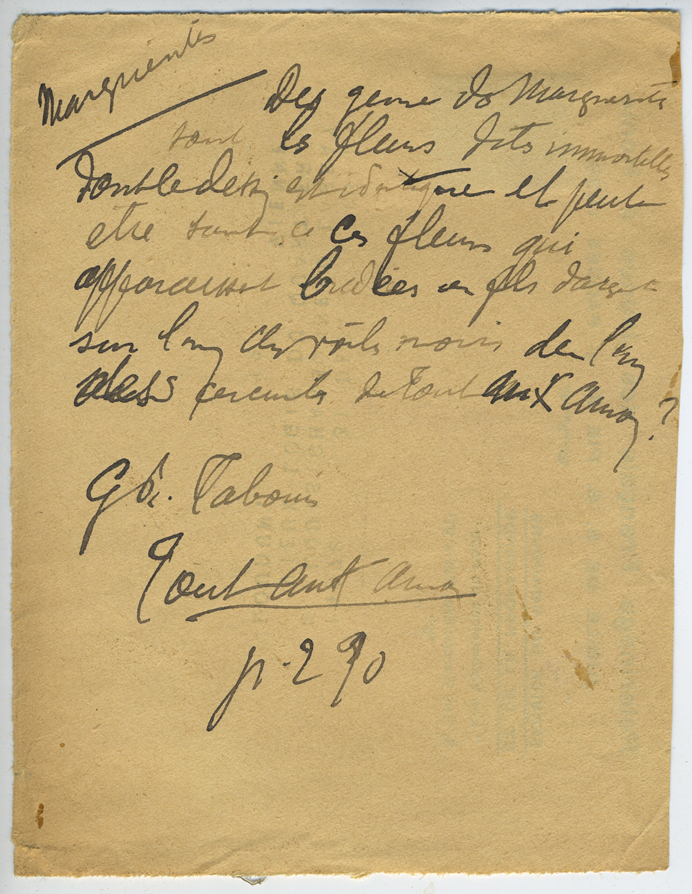 Marguerites
Du genre des Marguerites
sont les fleurs dites immortelles
dont le dessin est identique et peut
être sont ce ces fleurs qui
apparaissent brodées en fils d'argent
sur voiles noirs
des de Tout ank Amon ?
G. Tabouis
Tout ank Amon
p. 290